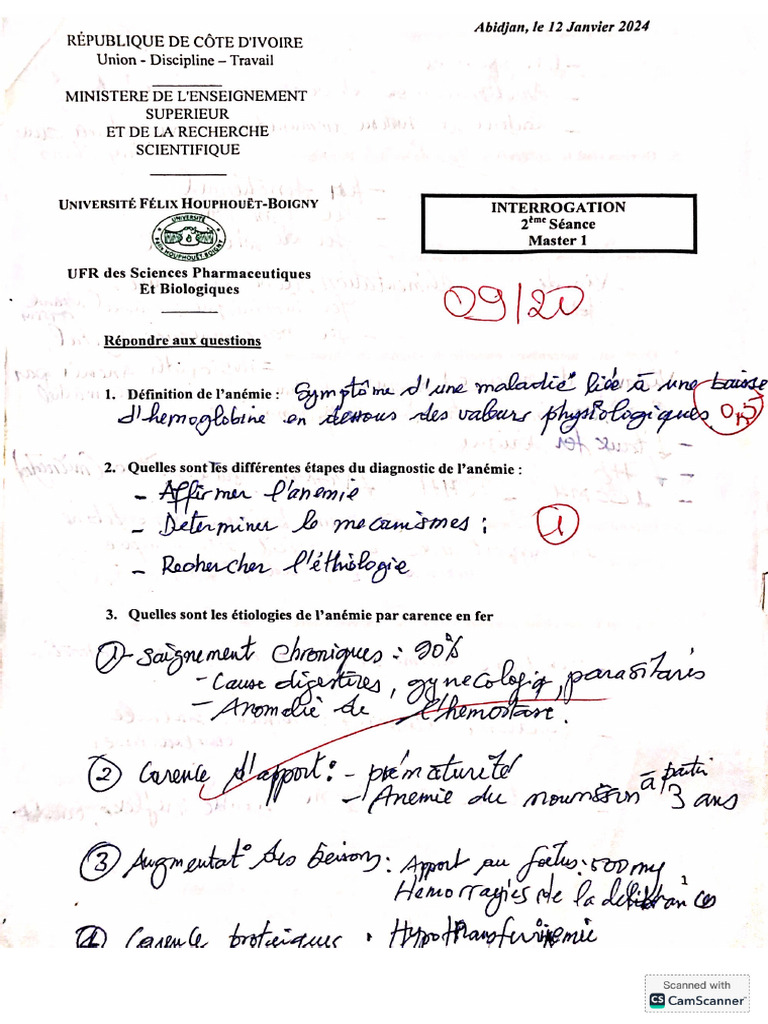 Abidjan, le 12 Janvier 2024
RÉPUBLIQUE DE CÔTE D'IVOIRE
Union - Discipline – Travail
MINISTERE DE L'ENSEIGNEMENT
SUPERIEUR
ET DE LA RECHERCHE
SCIENTIFIQUE
UNIVERSITÉ FÉLIX HOUPHOUËT-BOIGNY
INTERROGATION
2ème Séance
Master 1
UNIVERSITÉ
FELIX HOUPHOUET BOIGNY
UFR des Sciences Pharmaceutiques
Et Biologiques
09/20
Répondre aux questions
1. Définition de l'anémie : Symptôme d'une maladie liée à une baisse
d'hemoglobine en dessous des valeurs physiologiques. 0,5
2. Quelles sont les différentes étapes du diagnostic de l'anémie :
- Affirmer l'anemie
- Determiner le mecanismes ;
1
- Rechercher l'éthiologie
3. Quelles sont les étiologies de l'anémie par carence en fer
1 - Saignement chroniques : 90%
- Cause digestives, gynecologiq, parasitaires
- Anomalie de l'hemostase.
2 Carence d'apport : - prématurité
- Anemie du nourrisson à partir 3 ans
3 Augmentat° des besoins : Apport au foetus : 500 mg
Hémorragies de la délivrances
4 Carence proteiques : Hypotransferrinemie
Scanned with
CS CamScanner